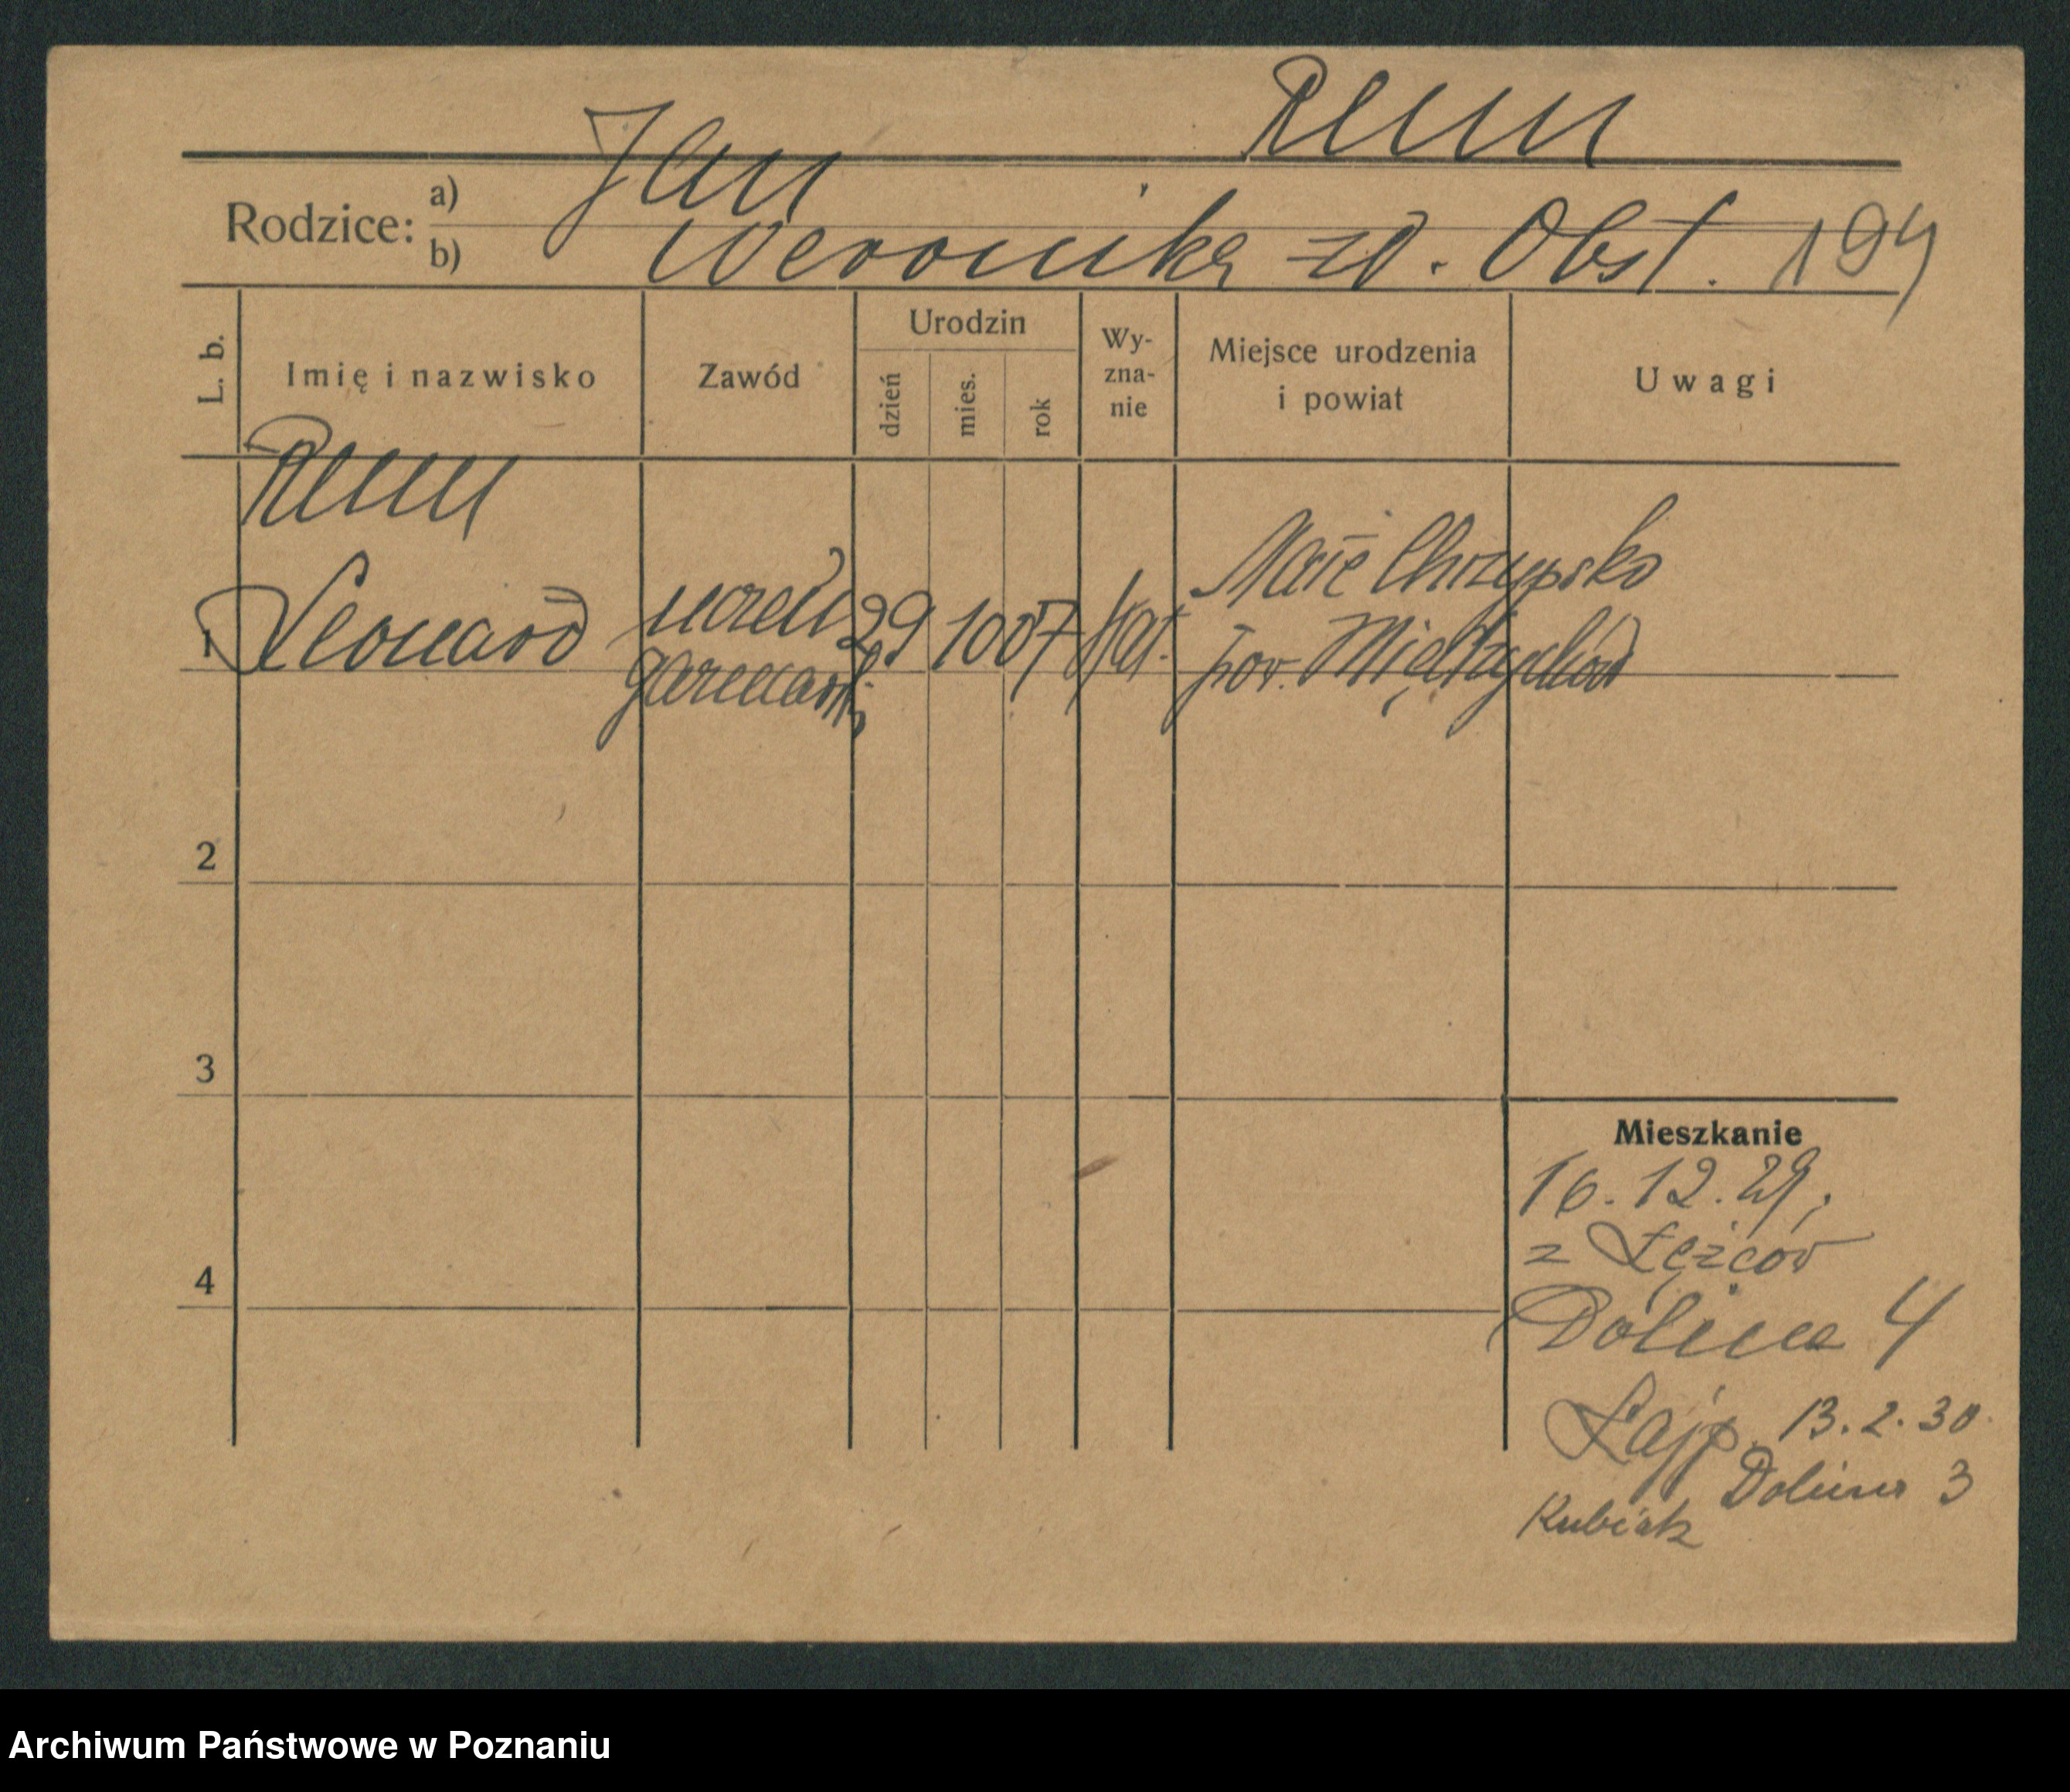 Renn
Rodzice: a) Jan
b) Weronika zd. Obst. 194
L. b.
Imię i nazwisko
Zawód
Urodzin
dzień
mies.
rok
Wy-
zna-
nie
Miejsce urodzenia
i powiat
Uwagi
Renn
1 Leonard
uczeń
garncarski
29 10 07 Kat.
Małe Chrzypsko
pow. Międzychód
2
3
4
Mieszkanie
16.12.29,
z
Dolina 4
13.2.30
Dolina 3
Kubiak
Archiwum Państwowe w Poznaniu